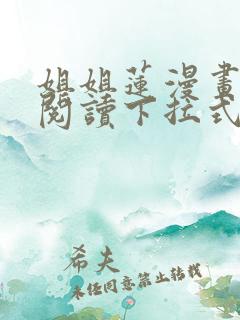 姐姐蓮漫畫
閱讀下拉式
希夫
未經同意禁止轉載